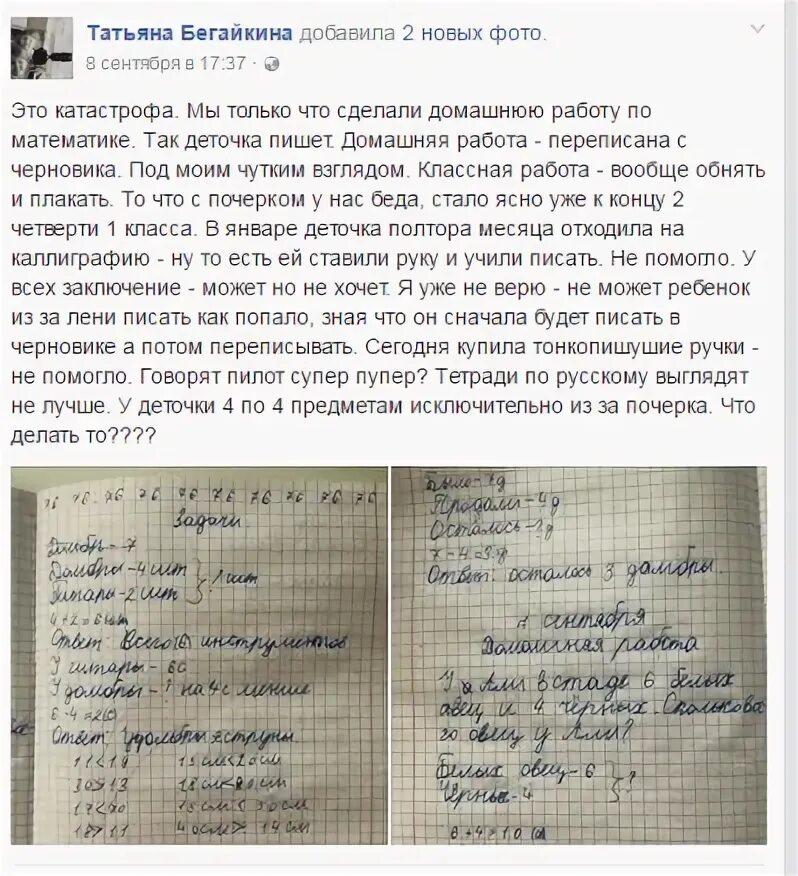 Татьяна Бегайкина добавила 2 новых фото.
8 сентября в 17:37 ·
Это катастрофа. Мы только что сделали домашнюю работу по
математике. Так деточка пишет. Домашняя работа - переписана с
черновика. Под моим чутким взглядом. Классная работа - вообще обнять
и плакать. То что с почерком у нас беда, стало ясно уже к концу 2
четверти 1 класса. В январе деточка полтора месяца отходила на
каллиграфию - ну то есть ей ставили руку и учили писать. Не помогло. У
всех заключение - может но не хочет. Я уже не верю - не может ребенок
из за лени писать как попало, зная что он сначала будет писать в
черновике а потом переписывать. Сегодня купила тонкопишушие ручки -
не помогло. Говорят пилот супер пупер? Тетради по русскому выглядят
не лучше. У деточки 4 по 4 предметам исключительно из за почерка. Что
делать то????
76 76 76 76 76 76 76 76 76 76
Задачи
Домбр - 7
Домбры - 4 шт
Гитары - 2 шт } ? шт
4+2=6 шт
Ответ: Всего (6) инструментов
У гитары - 6с
У домбры - ? на 4с меньше
6-4=2(с)
Ответ: У домбры 2 струны.
11<19 15см<20см
30>13 18см<
17<20 15см<30см
18>11 40см>14см
Было - 7д
Продали - 4д
Осталось - ?д
7-4=3д
Ответ: осталось 3 домбры.
сентября
Домашняя работа
У Али в стаде 6 белых
овец и 4 чёрных. Скольково
го овец у Али?
Белых овец - 6
Чёрных - 4 } ?
6+4=10